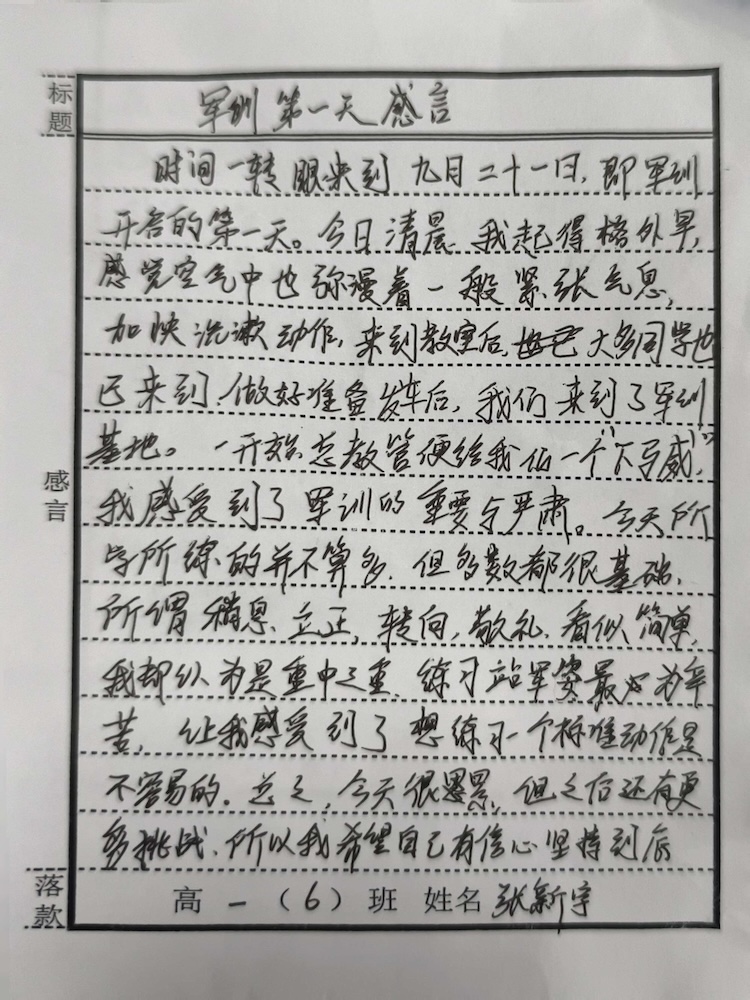 标题
军训第一天感言
时间一转眼来到九月二十一日，即军训
开营的第一天。今日清晨，我起得格外早，
感觉空气中也弥漫着一般紧张气息，
加快洗漱动作，来到教室后，大多同学也
已来到，做好准备发车后，我们来到了军训
基地。一开始总教官便给我们一个“下马威”，
我感受到了军训的重要与严肃。今天所
学所练的并不算多，但多数都很基础，
所谓稍息，立正，转向，敬礼，看似简单，
我却认为是重中之重，练习站军姿最为辛
苦，让我感受到了想练习一个标准动作是
不容易的。总之，今天很累，但之后还有更
多挑战，所以我希望自己有信心坚持到底
感言
落款
高一（6）班 姓名 张新宇